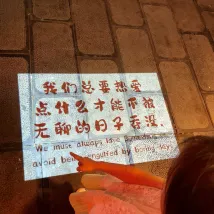 我们总要热爱
点什么才能不被
无聊的日子吞没.
We must always love something
avoid being engulfed by boring days